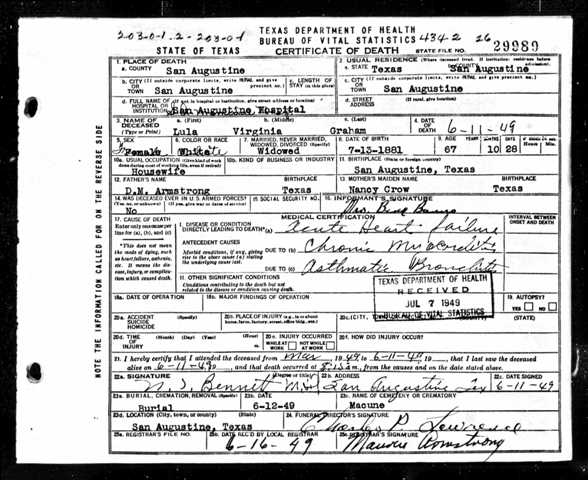 203-0-1.2-203-01
TEXAS DEPARTMENT OF HEALTH
BUREAU OF VITAL STATISTICS 4342 26
STATE OF TEXAS
CERTIFICATE OF DEATH
STATE FILE NO. 29989
1. PLACE OF DEATH
2. USUAL RESIDENCE (Where deceased lived. If institution: residence before admission)
a. COUNTY San Augustine
a. STATE Texas b. COUNTY San Augustine
b. CITY (If outside corporate limits, write RURAL and give precinct no.)
OR TOWN San Augustine
c. LENGTH OF STAY (in this place)
c. CITY (If outside corporate limits, write RURAL and give precinct no.)
San Augustine
d. FULL NAME OF (If not in hospital or institution, give street address or location)
HOSPITAL OR INSTITUTION San Augustine Hospital
d. STREET ADDRESS (If rural, give location)
3. NAME OF DECEASED (Type or Print)
a. (First) Lula
b. (Middle) Virginia
c. (Last) Graham
4. DATE OF DEATH 6-11-49
5. SEX Female
6. COLOR OR RACE White
7. MARRIED, NEVER MARRIED, WIDOWED, DIVORCED (Specify) Widowed
8. DATE OF BIRTH 7-13-1881
9. AGE YEARS 67 MONTHS 10 DAYS 28
10a. USUAL OCCUPATION (Give kind of work done during most of working life, even if retired) Housewife
10b. KIND OF BUSINESS OR INDUSTRY
11. BIRTHPLACE (State or foreign country) San Augustine, Texas
12. FATHER'S NAME D.M. Armstrong
BIRTHPLACE Texas
13. MOTHER'S MAIDEN NAME Nancy Crow
BIRTHPLACE Texas
14. WAS DECEASED EVER IN U.S. ARMED FORCES? (Yes, no, or unknown) (If yes, give war or dates of service) No
15. SOCIAL SECURITY NO.
16. INFORMANT'S SIGNATURE
17. CAUSE OF DEATH
MEDICAL CERTIFICATION
INTERVAL BETWEEN ONSET AND DEATH
Enter only one cause per line for (a), (b), and (c)
I. DISEASE OR CONDITION DIRECTLY LEADING TO DEATH* (a) Acute Heart Failure
*This does not mean the mode of dying, such as heart failure, asthenia, etc. It means the disease, injury, or complication which caused death.
ANTECEDENT CAUSES
Morbid conditions, if any, giving rise to the above cause (a) stating the underlying cause last.
DUE TO (b) Chronic Myocarditis
DUE TO (c) Asthmatic Bronchitis
II. OTHER SIGNIFICANT CONDITIONS
Conditions contributing to the death but not related to the disease or condition causing death.
TEXAS DEPARTMENT OF HEALTH
RECEIVED
JUL 7 1949
BUREAU OF VITAL STATISTICS
18a. DATE OF OPERATION
18b. MAJOR FINDINGS OF OPERATION
19. AUTOPSY? YES NO
20a. ACCIDENT SUICIDE HOMICIDE (Specify)
20b. PLACE OF INJURY (e.g., in or about home, farm, factory, street, office bldg., etc.)
20c. (CITY, (STATE)
20d. TIME OF INJURY (Month) (Day) (Year) (Hour)
20e. INJURY OCCURRED WHILE AT WORK NOT WHILE AT WORK
20f. HOW DID INJURY OCCUR?
21. I hereby certify that I attended the deceased from Mar 1949, to 6-11-49, 19 , that I last saw the deceased
alive on 6-11-49, 19 , and that death occurred at m., from the causes and on the date stated above.
22a. SIGNATURE (Degree or title) Bennett M.D.
22b. ADDRESS San Augustine Tex
22c. DATE SIGNED 6-11-49
23a. BURIAL, CREMATION, REMOVAL (Specify) Burial
23b. DATE 6-12-49
23c. NAME OF CEMETERY OR CREMATORY Macune
23d. LOCATION (City, town, or county) (State) San Augustine, Texas
24. FUNERAL DIRECTOR'S SIGNATURE
25a. REGISTRAR'S FILE NO.
25b. DATE REC'D BY LOCAL REGISTRAR 6-16-49
25c. REGISTRAR'S SIGNATURE Armstrong
NOTE THE INFORMATION CALLED FOR ON THE REVERSE SIDE